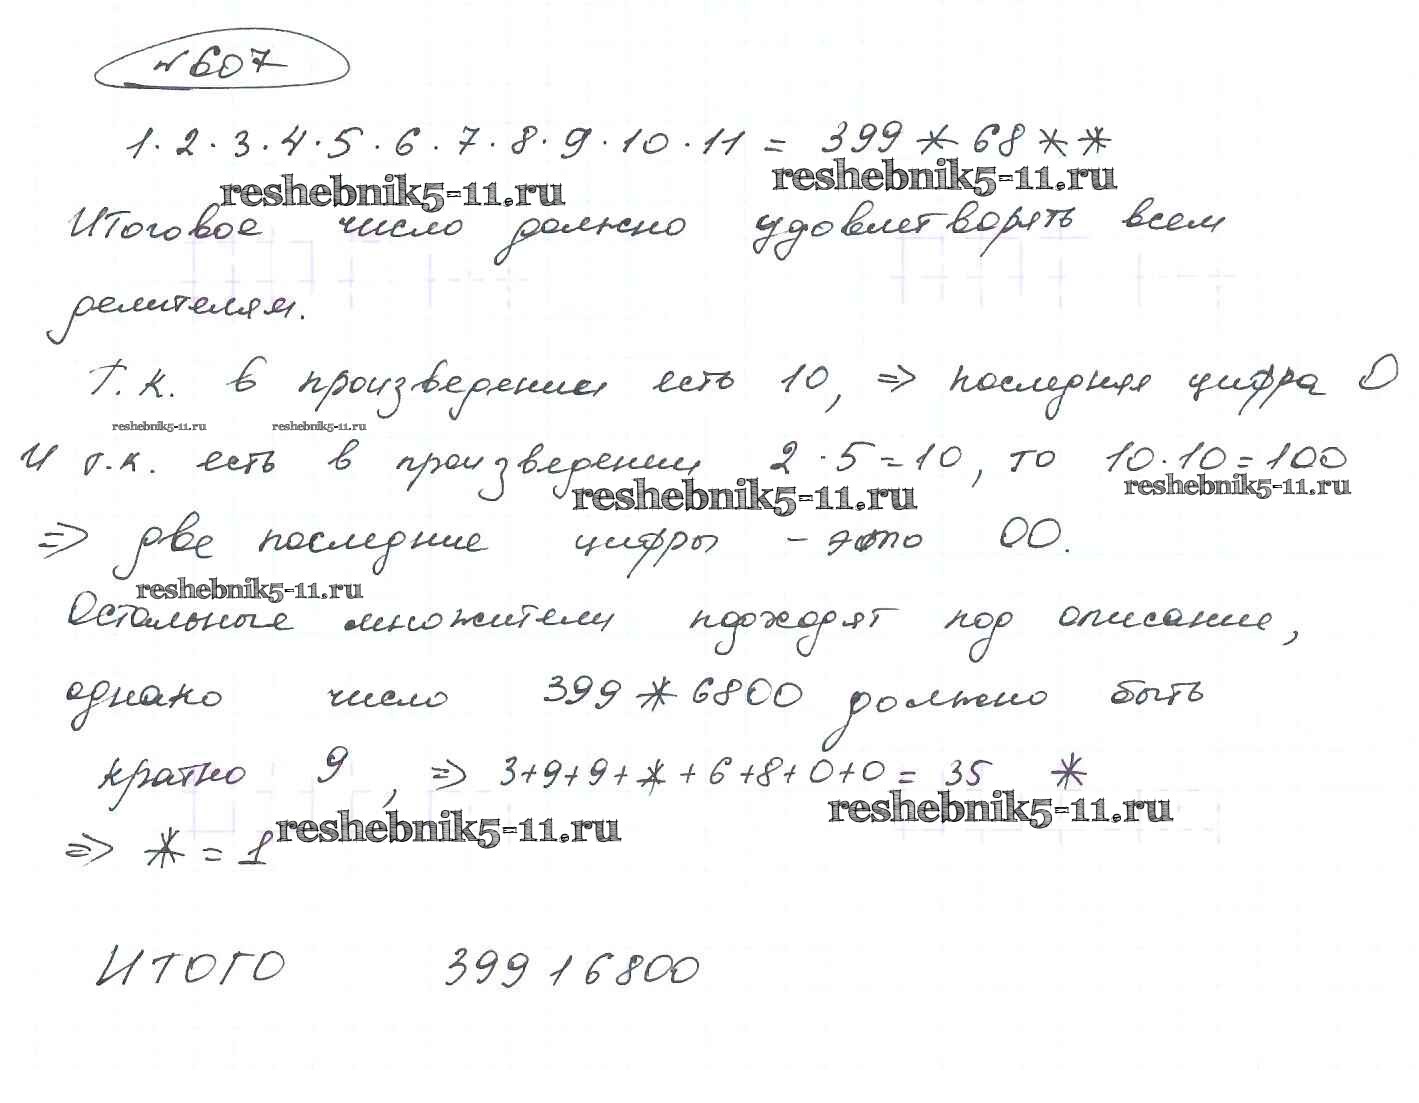 №607
1·2·3·4·5·6·7·8·9·10·11 = 399*68**
reshebnik5-11.ru reshebnik5-11.ru
Итоговое число должно удовлетворять всем
делителям.
Т.к. в произведении есть 10, => последняя цифра 0
reshebnik5-11.ru reshebnik5-11.ru
И т.к. есть в произведении 2·5=10, то 10·10=100
reshebnik5-11.ru reshebnik5-11.ru
=> две последние цифры - это 00.
reshebnik5-11.ru
Остальные множители подходят под описание,
однако число 399*6800 должно быть
кратно 9, => 3+9+9+*+6+8+0+0= 35 *
reshebnik5-11.ru reshebnik5-11.ru
=> * = 1
ИТОГО 39916800